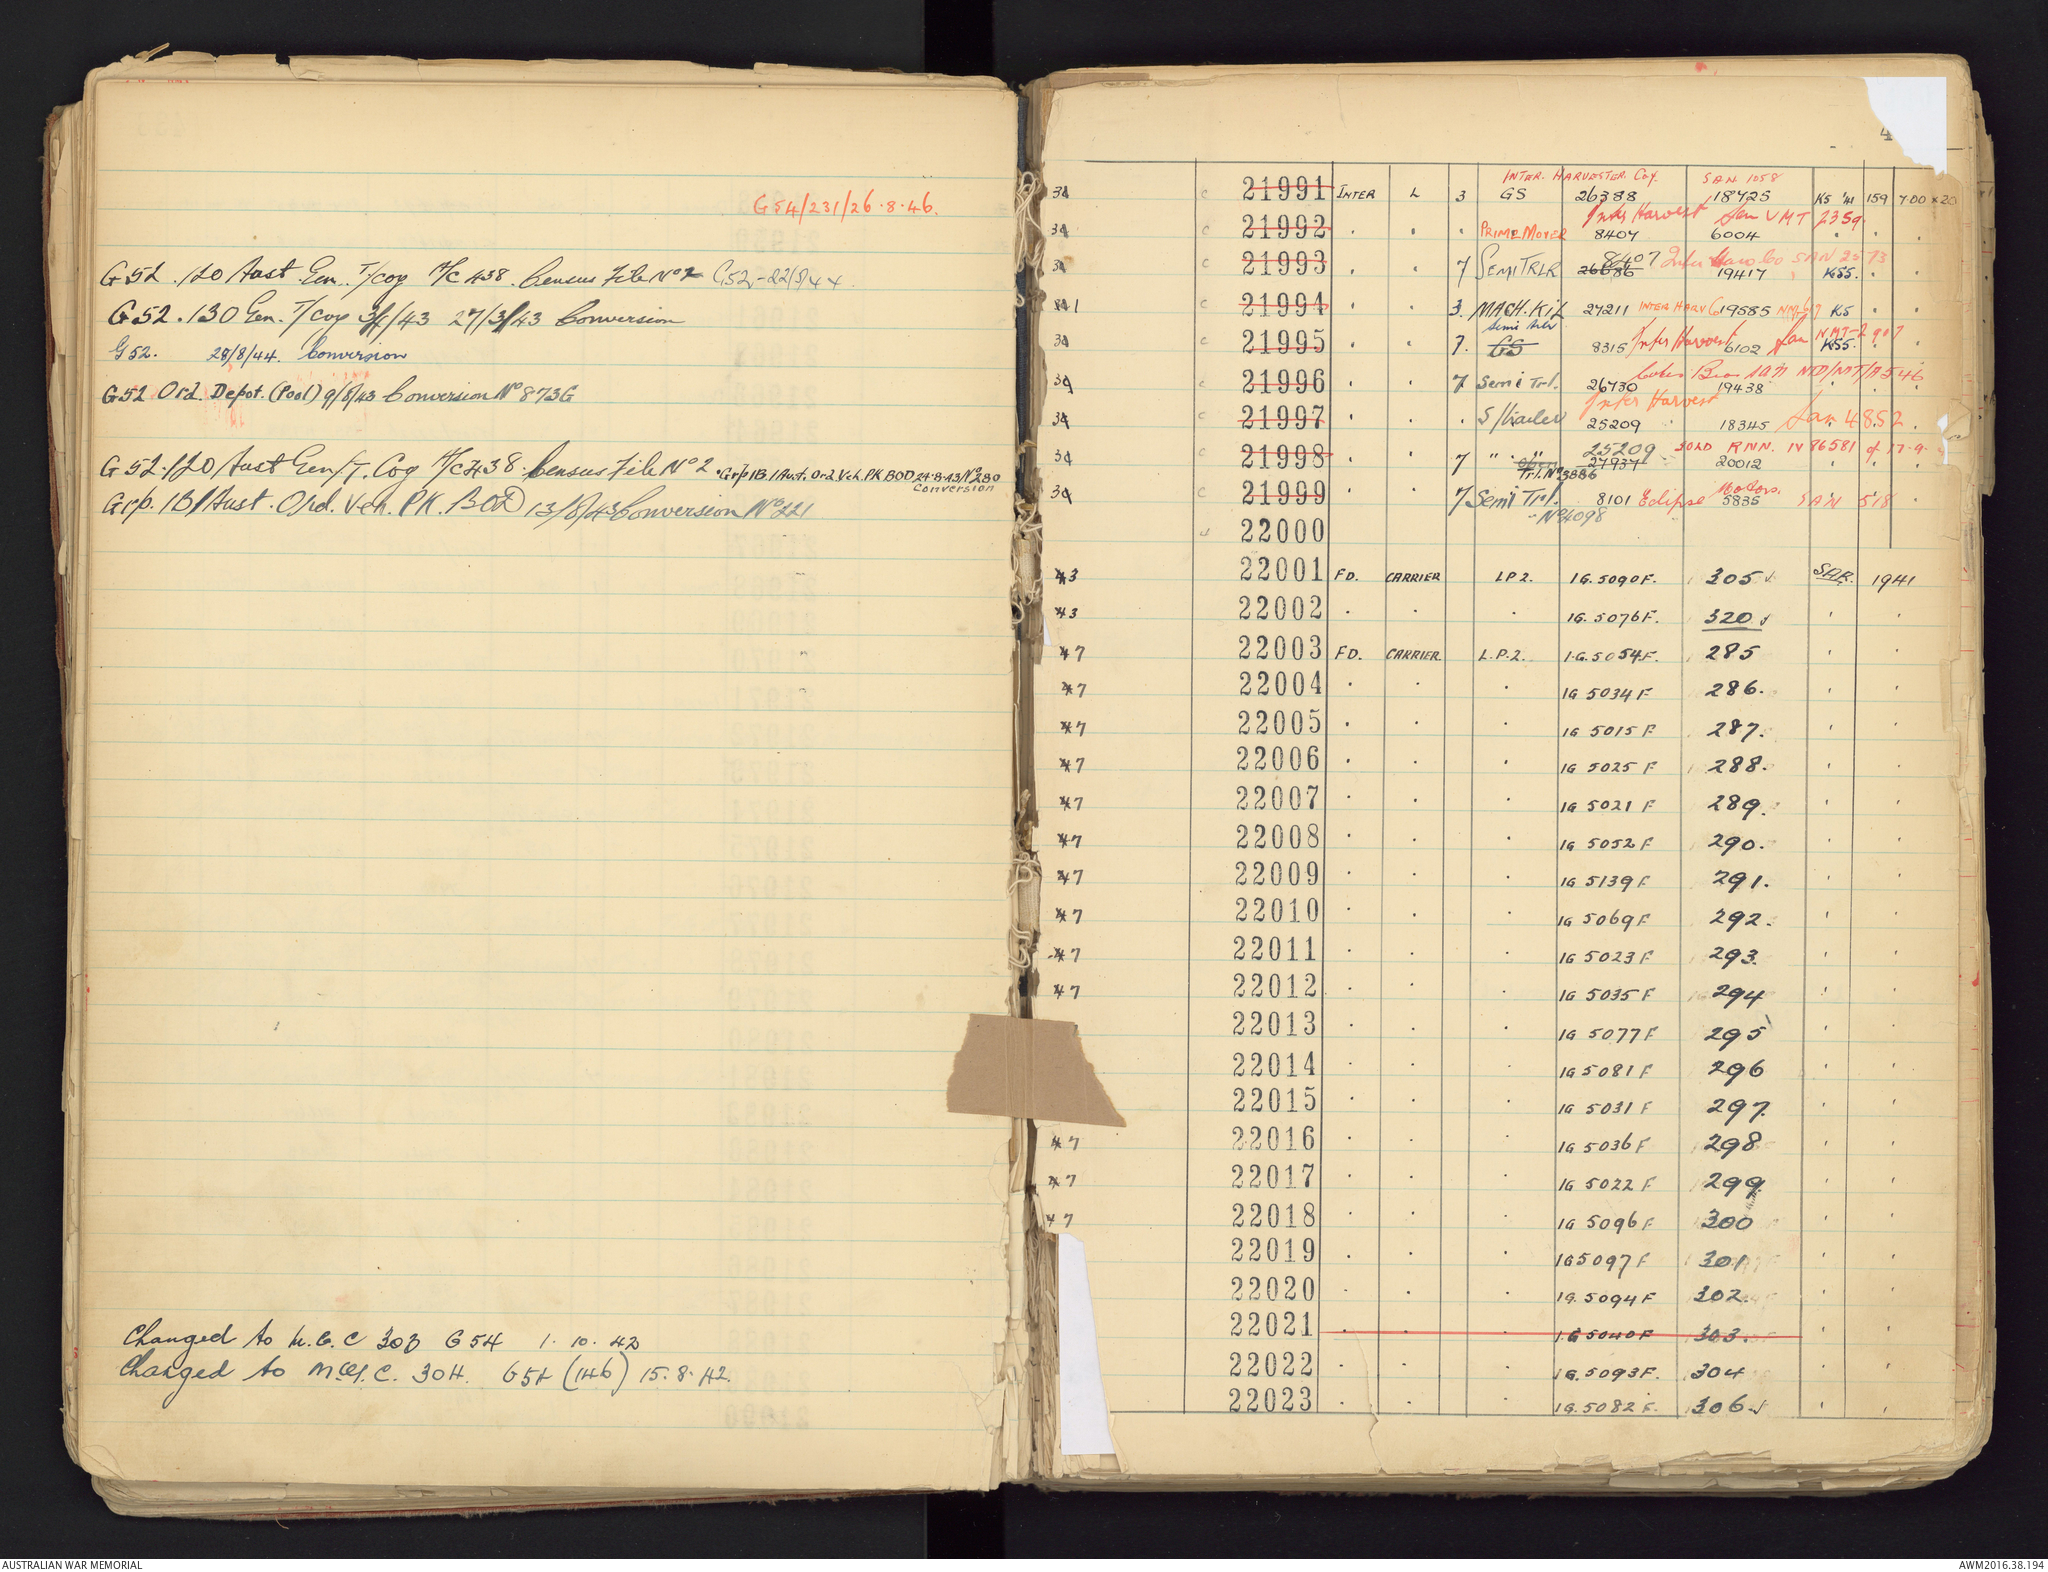 G54/231/26.8.46.
G52. 120 Aust Gen. T/coy A/c 438. Census File No 2 G52-22/8/44.
G52. 130 Gen. T/coy 3/4/43 27/3/43 Conversion
G52. 28/8/44. Conversion
G52 Ord. Depot. (Pool) 9/8/43 Conversion No 873G
G52. 120 Aust Gen. T. Coy A/c 438. Census File No 2. Grp 1B. 1 Aust. Ord Veh. PK BOD 24.8.43/No 280
Conversion
Grp. 1B 1 Aust. Ord. Veh. PK. BOD 13/8/43 Conversion No 221
Changed to M.G.C 303 G54 1.10.42
Changed to M.G.C. 304. G54 (146) 15.8.42.
4
INTER. HARVESTER. Coy. SAN 1058
34 c 21991 INTER L 3 GS 26388 18425 K5 '41 159 7.00 x 20
Inter Harvest San VMT 2359
34 c 21992 . . . PRIME MOVER 8407 6004 . . .
8407 Inter Harv Co SAN 2573
34 c 21993 . . 7 SEMI TRLR 26686 19417 K55. . .
341 c 21994 . . 3. MACH. KIL 27211 INTER HARV G 19585 NMT-67 K5 . .
Semi trlr
34 c 21995 . . 7. GS 8315 Inter Harvest 6102 San NMT-2907 K55. . .
Coles Bros SAN NTD/NDT/A546
34 c 21996 . . 7 Semi Trl. 26730 19438 . . .
Inter Harvest
34 c 21997 . . . S/trailer 25209 18345 San 4852 .
25209 SOLD RNN. IV 86581 of 17.9.
34 c 21998 . . 7 " " 27937 20012 . . .
Trl. No 3886
34 c 21999 7 Semi Trl. 8101 Eclipse Motors. 5835 SAN 518 .
No 4098
22000
43 22001 FD. CARRIER LP2. IG. 5090F. 305 SAR. 1941
43 22002 . . . IG. 5076F. 320 . .
47 22003 FD. CARRIER L.P.2. I.G. 5054F. 285 . .
47 22004 . . . IG 5034 F 286. . .
47 22005 . . . IG 5015 F 287. . .
47 22006 . . . IG 5025 F 288. . .
47 22007 . . . IG 5021 F 289. . .
47 22008 . . . IG 5052 F 290. . .
47 22009 . . . IG 5139 F 291. . .
47 22010 . . . IG 5069 F 292. . .
47 22011 . . . IG 5023 F 293. . .
47 22012 . . . IG 5035 F 294 . .
22013 . . . IG 5077 F 295 . .
22014 . . . IG 5081 F 296 . .
22015 . . . IG 5031 F 297. . .
47 22016 . . . IG 5036 F 298 . .
47 22017 . . . IG 5022 F 299. . .
47 22018 . . . IG 5096 F 300 . .
22019 . . . IG 5097 F 301 . .
22020 . . . IG. 5094 F 302. . .
22021 . . . I.G 5040 F 303. . .
22022 . . . IG. 5093 F. 304 . .
22023 . . . IG. 5082 F. 306 . .
AUSTRALIAN WAR MEMORIAL
AWM2016.38.194